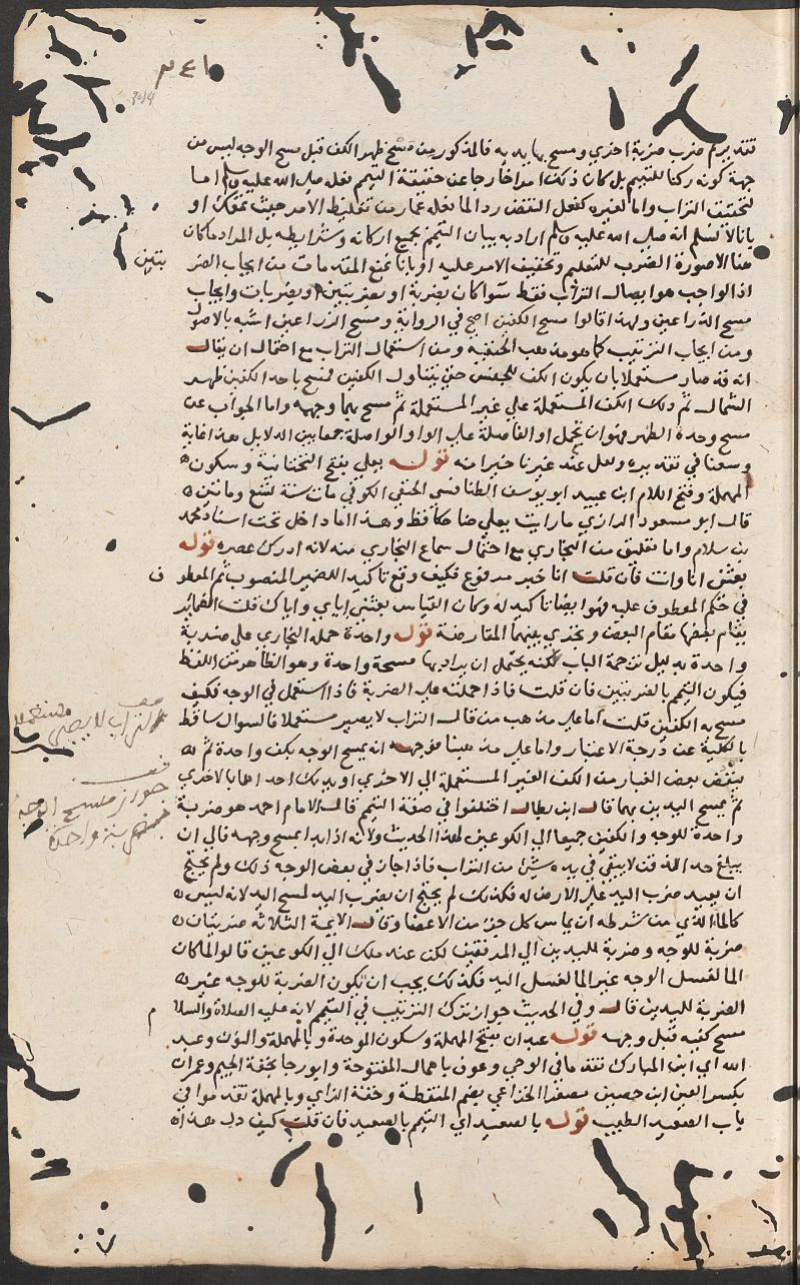 ٣٤١
تقديره ثم ضرب ضربة اخري ومسح بها يديه فالمذكور من مسح ظهر الكف قبل مسح الوجه ليس من
جهة كونه ركنا للتيمم بل كان ذلك امرا خارجا عن حقيقة التيمم فعله صلى الله عليه وسلم اما
لتخفيف التراب واما لغيره كفعل النفض ردا لما فعله عمار من تغليظ الامر حيث تمعك او
بانا لا نسلم انه صلى الله عليه وسلم اراد به بيان التيمم بجميع اركانه وشرايطه بل المراد ما كان
هنا الا صورة الضرب للتعليم وتخفيف الامر عليه او بانا نمنع المقدمات من ايجاب الضر
بتين
اذ الواجب هو ايصال التراب فقط سوا كان بضربة او بضربتين او بضربات وايجاب
مسح الذراعين ولهذا قالوا مسح الكفين اصح في الرواية ومسح الزراعين اشبه بالاصول
ومن ايجاب الترتيب كما هو مذهب الحنفيه ومن استعمال التراب مع احتمال ان يقال
انه قد صار مستعملا بان يكون الكف للجنس حتى يتناول الكفين فمسح باحد الكفين ظهر
الشمال ثم دلك الكف المستعملة علي غير المستعملة ثم مسح بهما وجهه واما الجواب عن
مسح وحدة الظهر فهو ان تحمل او الفاصلة على الواو الواصلة جمعا بين الدلايل هذا غاية
وسعنا في تقديره ولعل عند غيرنا خيرا منه قوله يعلي بفتح التحتانية وسكون
المهملة وفتح اللام ابن عبيد ابو يوسف الطنافسي الحنفي الكوفي مات سنة تسع ومائتين
قال ابو مسعود الرازي ما رايت يعلي ضاحكا قط وهذا اما داخل تحت اسناد محمد
بن سلام واما تعليق من البخاري مع احتمال سماع البخاري منه لانه ادرك عصره قوله
بعثني انا وانت فان قلت انا خبر مرفوع فكيف وقع تاكيدا للضمير المنصوب ثم المعطو
ف
في حكم المعطوف عليه فهو ايضا تاكيد له وكان القياس بعثني اياي واياك قلت الضمائر
يقام بعضها مقام البعض وتجري بينهما المقارضة قوله واحدة حمله البخاري علي ضربة
واحدة بدليل ترجمة الباب لكنه يحتمل ان يراد بها مسحة واحدة وهو الظاهر من اللفظ
فيكون التيمم بالضربتين فان قلت فاذا حملته على الضربة فاذا استعمل في الوجه فكيف
مسح به الكفين قلت اما على مذهب من قال التراب لا يصير مستعملا فالسوال ساقط
بالكلية عن درجة الاعتبار واما على مذهبنا فوجهه انه يمسح الوجه بكف واحدة ثم
ينفض بعض الغبار من الكف الغير المستعملة الي الاخري او يدلك احداهما بالاخري
ثم يمسح اليدين بهما قال ابن بطال اختلفوا في صفة التيمم قال الامام احمد هو ضربة
واحدة للوجه والكفين جميعا الي الكوعين لهذا الحديث ولانه اذا بدا بمسح وجهه فالي ان
يبلغ حد الذقن لا يبقي في يده شئ من التراب فاذا جاز في بعض الوجه ذلك ولم يحتج
ان يعيد ضرب اليد على الارض له فكذلك لم يحتج ان يضرب اليد لمسح اليد لانه ليس
كالما الذي من شرطه ان يماس كل جزء من الاعضا وقال الايمة الثلاثه ضربتان
ضربة للوجه وضربة لليدين الي المرفقين لكن عند ملك الي الكوعين قالوا لما كان
الما لغسل الوجه غير الما لغسل اليد فكذلك يجب ان يكون الضربة للوجه غير
الضربة لليدين قال وفي الحديث جواز ترك الترتيب في التيمم لانه عليه الصلاة والسلا
م
مسح كفيه قبل وجهه قوله عبدان بفتح المهملة وسكون الموحدة وبالمهملة والنون وعبد
الله اي ابن المبارك تقدما في الوحي وعوف باهمال المفتوحة وابو رجا بخفة الجيم وعمران
بكسر العين ابن حصين مصغرا الخزاعي بضم المنقطة وخفة الزاي وبالمهملة تقدموا في
باب الصعيد الطيب قوله بالصعيد اي التيمم بالصعيد فان قلت كيف دل هذا
التراب لا يصير مستعملا
جواز مسح الوجه
بضربة واحدة